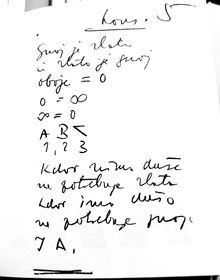 Kons. 5
Gnoj je zlato
in zlato je gnoj
oboje = 0
0 = ∞
∞ = 0
A B <
1, 2, 3
Kdor nima duše
ne potrebuje zlata
kdor ima dušo
ne potrebuje gnoja.
I A.